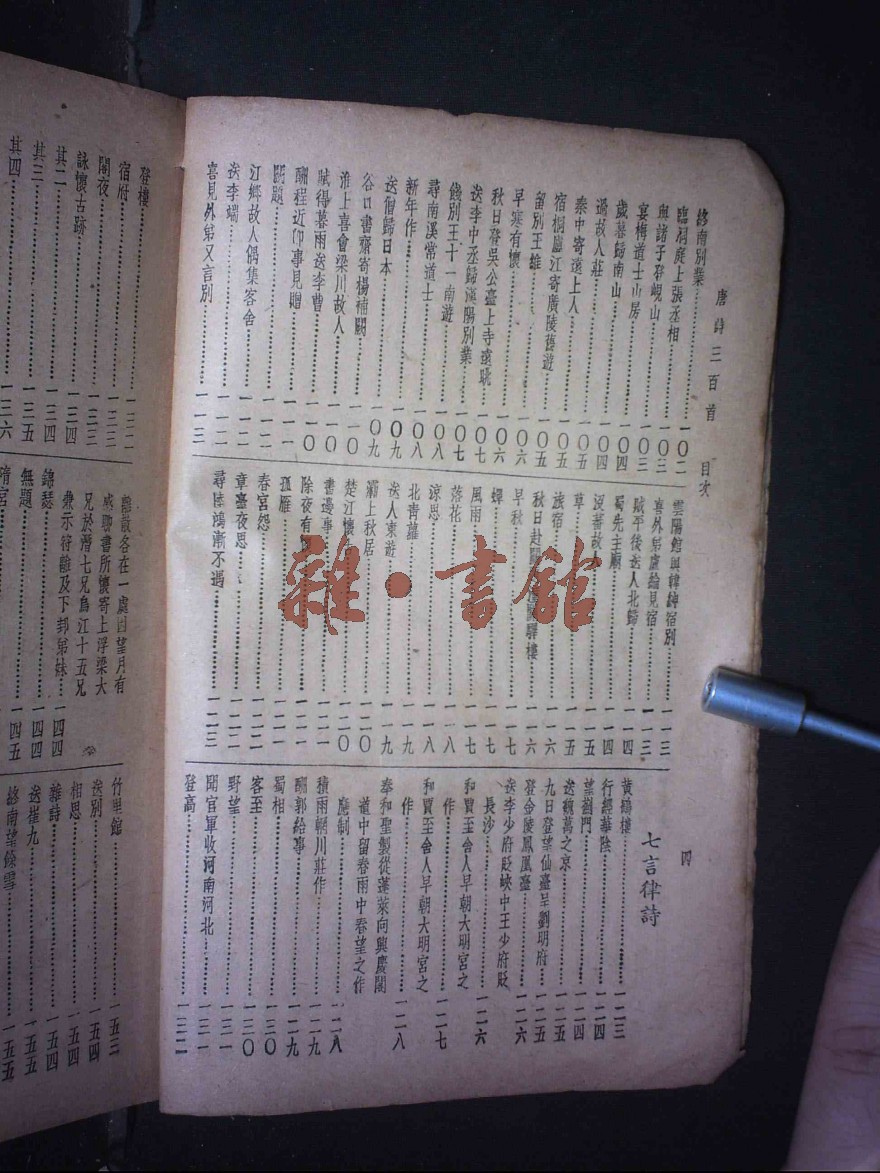 唐詩三百首 目次
四
終南別業 一〇二
臨洞庭上張丞相 一〇三
與諸子登峴山 一〇三
宴梅道士山房 一〇三
歲暮歸南山 一〇四
過故人莊 一〇四
秦中寄遠上人 一〇五
宿桐廬江寄廣陵舊遊 一〇五
留別王維 一〇五
早寒有懷 一〇六
秋日登吳公臺上寺遠眺 一〇六
送李中丞歸漢陽別業 一〇七
餞別王十一南遊 一〇七
尋南溪常道士 一〇八
新年作 一〇八
送僧歸日本 一〇九
谷口書齋寄楊補闕 一〇九
淮上喜會梁川故人 一一〇
賦得暮雨送李曹 一一〇
酬程近仰事見贈 一一〇
闕題 一一一
江鄉故人偶集客舍 一一二
送李端 一一二
喜見外弟又言別 一一三
雲陽館與韓紳宿別 一一三
喜外弟盧綸見宿 一一三
賊平後送人北歸 一一四
蜀先主廟 一一四
沒蕃故人 一一五
草 一一五
旅宿 一一六
秋日赴闕 驛樓 一一六
早秋 一一七
蟬 一一七
風雨 一一七
落花 一一八
涼思 一一八
北青蘿 一一九
送人東遊 一一九
灞上秋居 一二〇
楚江懷 一二〇
書邊事 一二一
除夜有 一二一
孤雁 一二一
春宮怨 一二二
章臺夜思 一二二
尋陸鴻漸不遇 一二三
七言律詩
黃鶴樓 一二三
行經華陰 一二四
望薊門 一二四
送魏萬之京 一二五
九日登望仙臺呈劉明府 一二五
登金陵鳳凰臺 一二六
送李少府貶峽中王少府貶
長沙 一二六
和賈至舍人早朝大明宮之
作 一二七
和賈至舍人早朝大明宮之
作 一二八
奉和聖製從蓬萊向興慶閣
道中留春雨中春望之作
應制 一二八
積雨輞川莊作 一二九
酬郭給事 一二九
蜀相 一三〇
客至 一三〇
野望 一三一
聞官軍收河南河北 一三一
登高 一三二
登樓 一三二
宿府 一三三
閣夜 一三三
詠懷古跡 一三四
其二 一三四
其三 一三五
其四 一三六
離散各在一處因望月有
感聊書所懷寄上浮梁大
兄於潛七兄烏江十五兄
兼示符離及下邽弟妹 一四四
錦瑟 一四四
無題 一四五
隋宮
竹里館 一五三
送別 一五四
相思 一五四
雜詩 一五五
送崔九 一五五
終南望餘雪 一五五
雜·書館